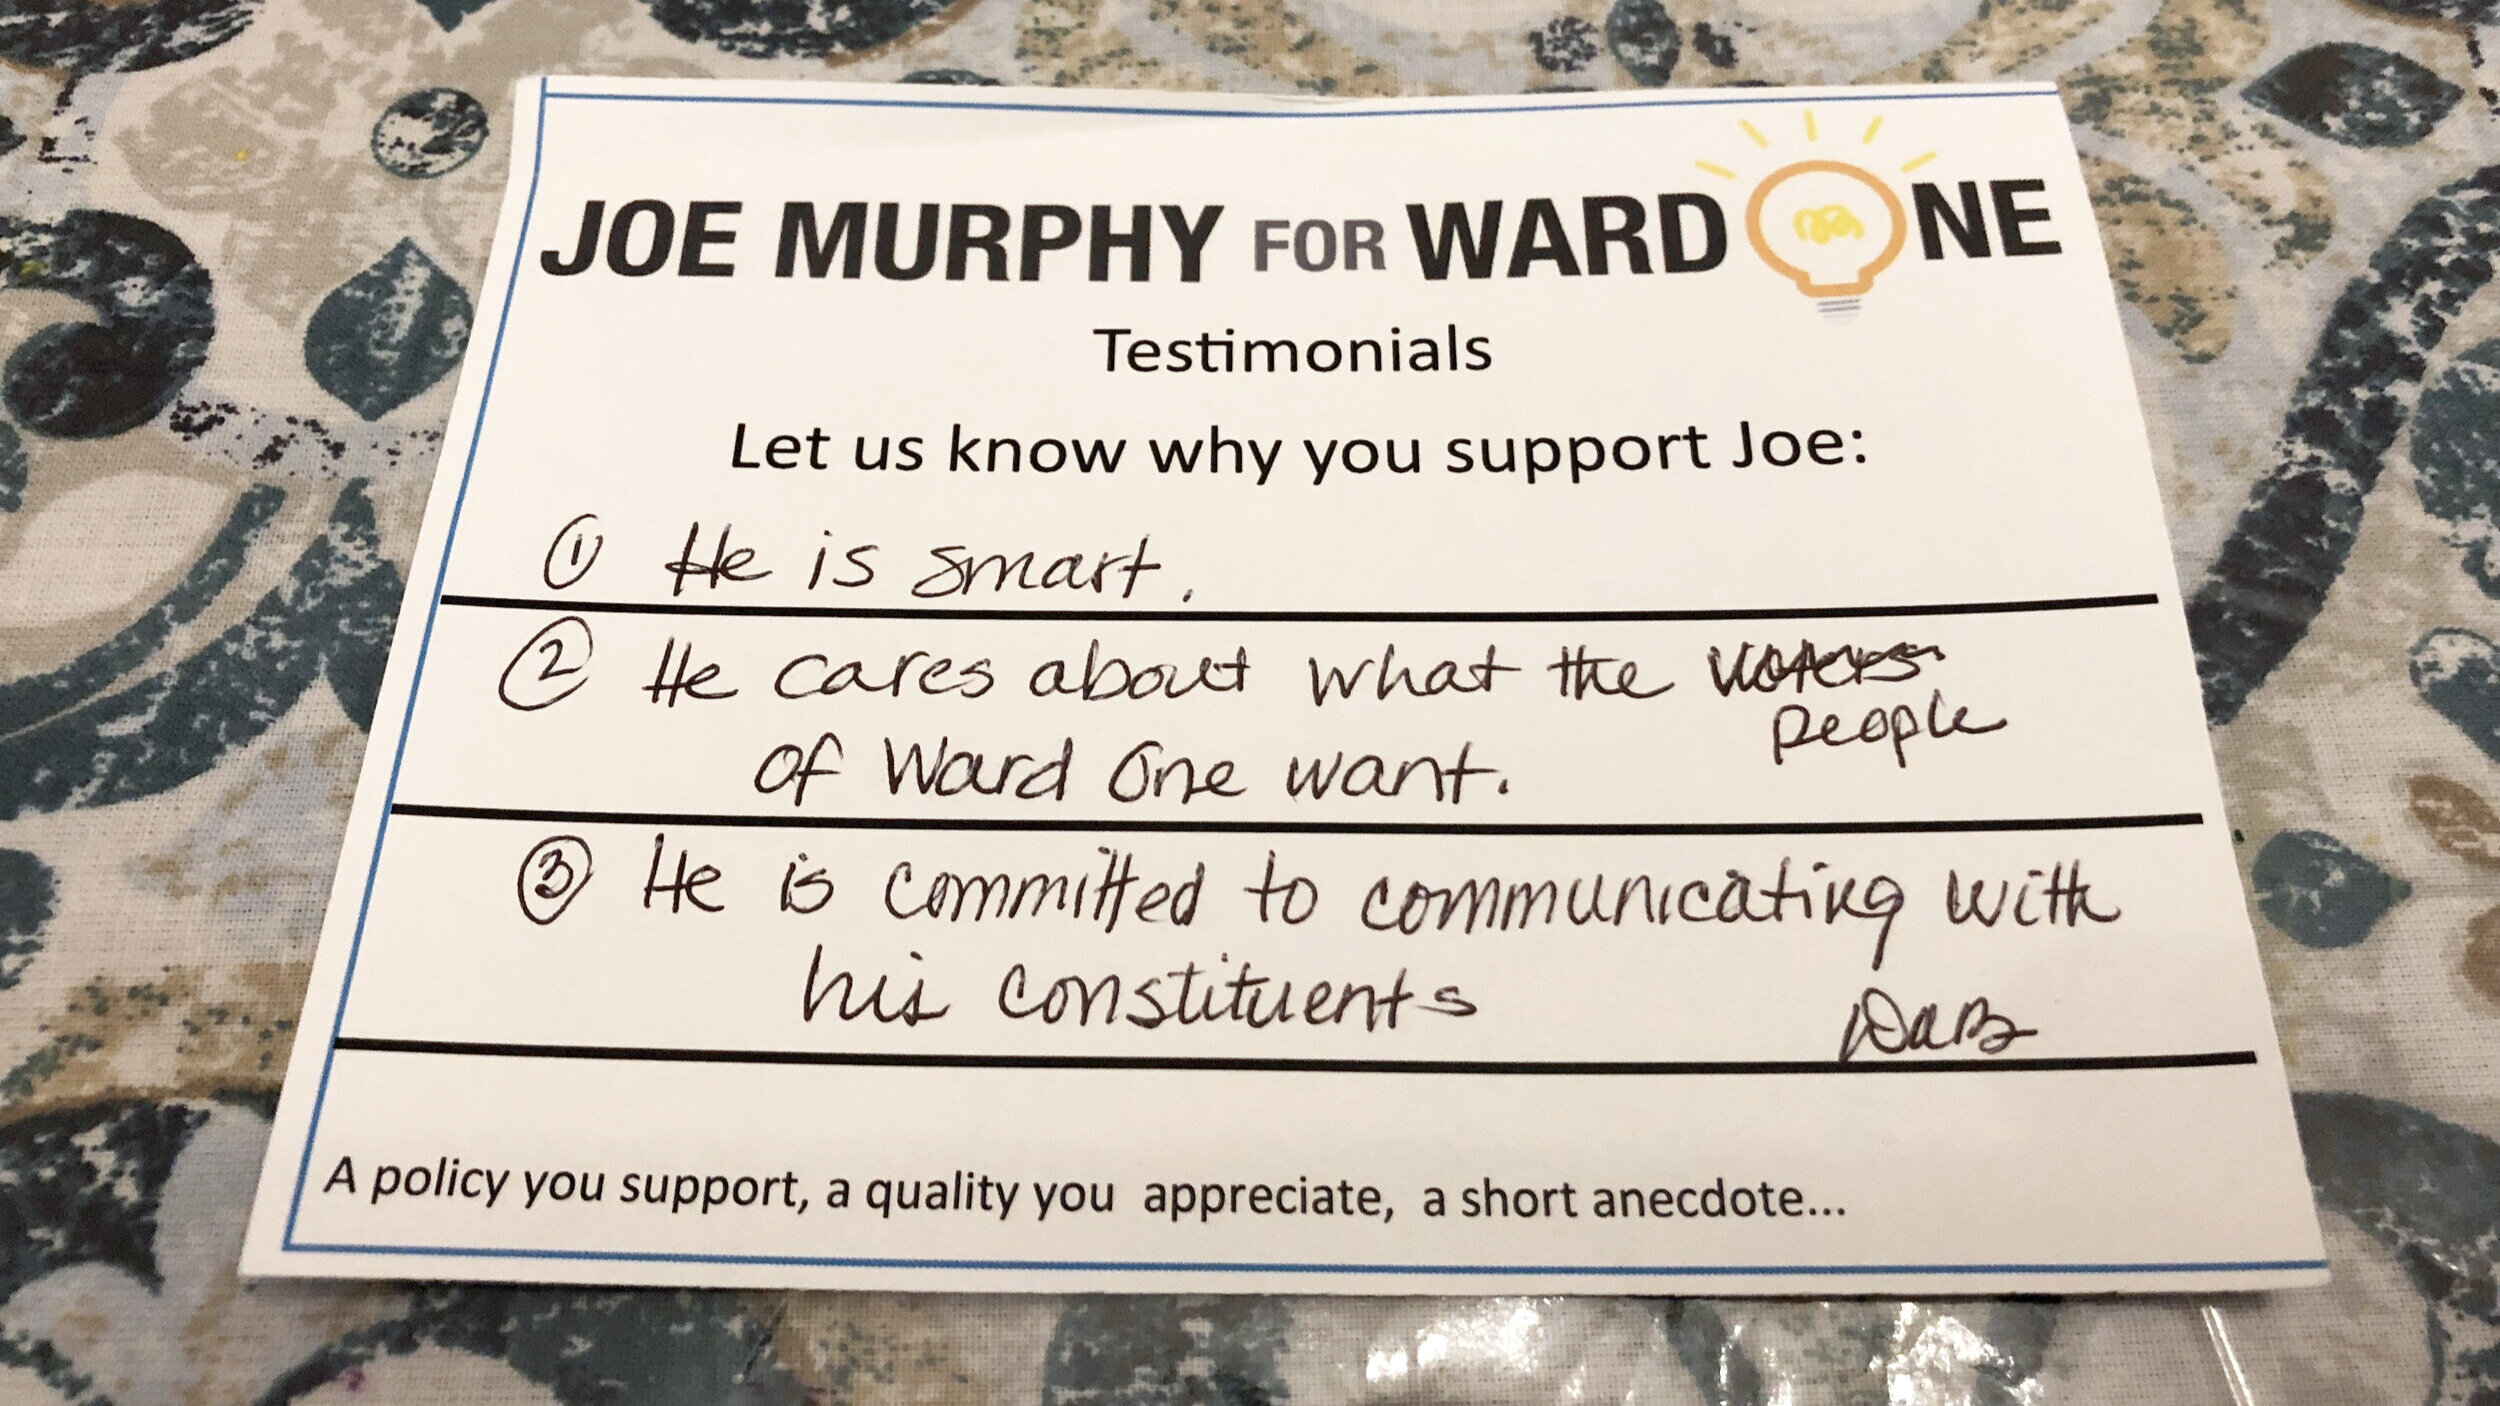 JOE MURPHY FOR WARD ONE
Testimonials
Let us know why you support Joe:
① He is smart.
② He cares about what the voters
people
of Ward One want.
③ He is committed to communicating with
his constituents
A policy you support, a quality you appreciate, a short anecdote...